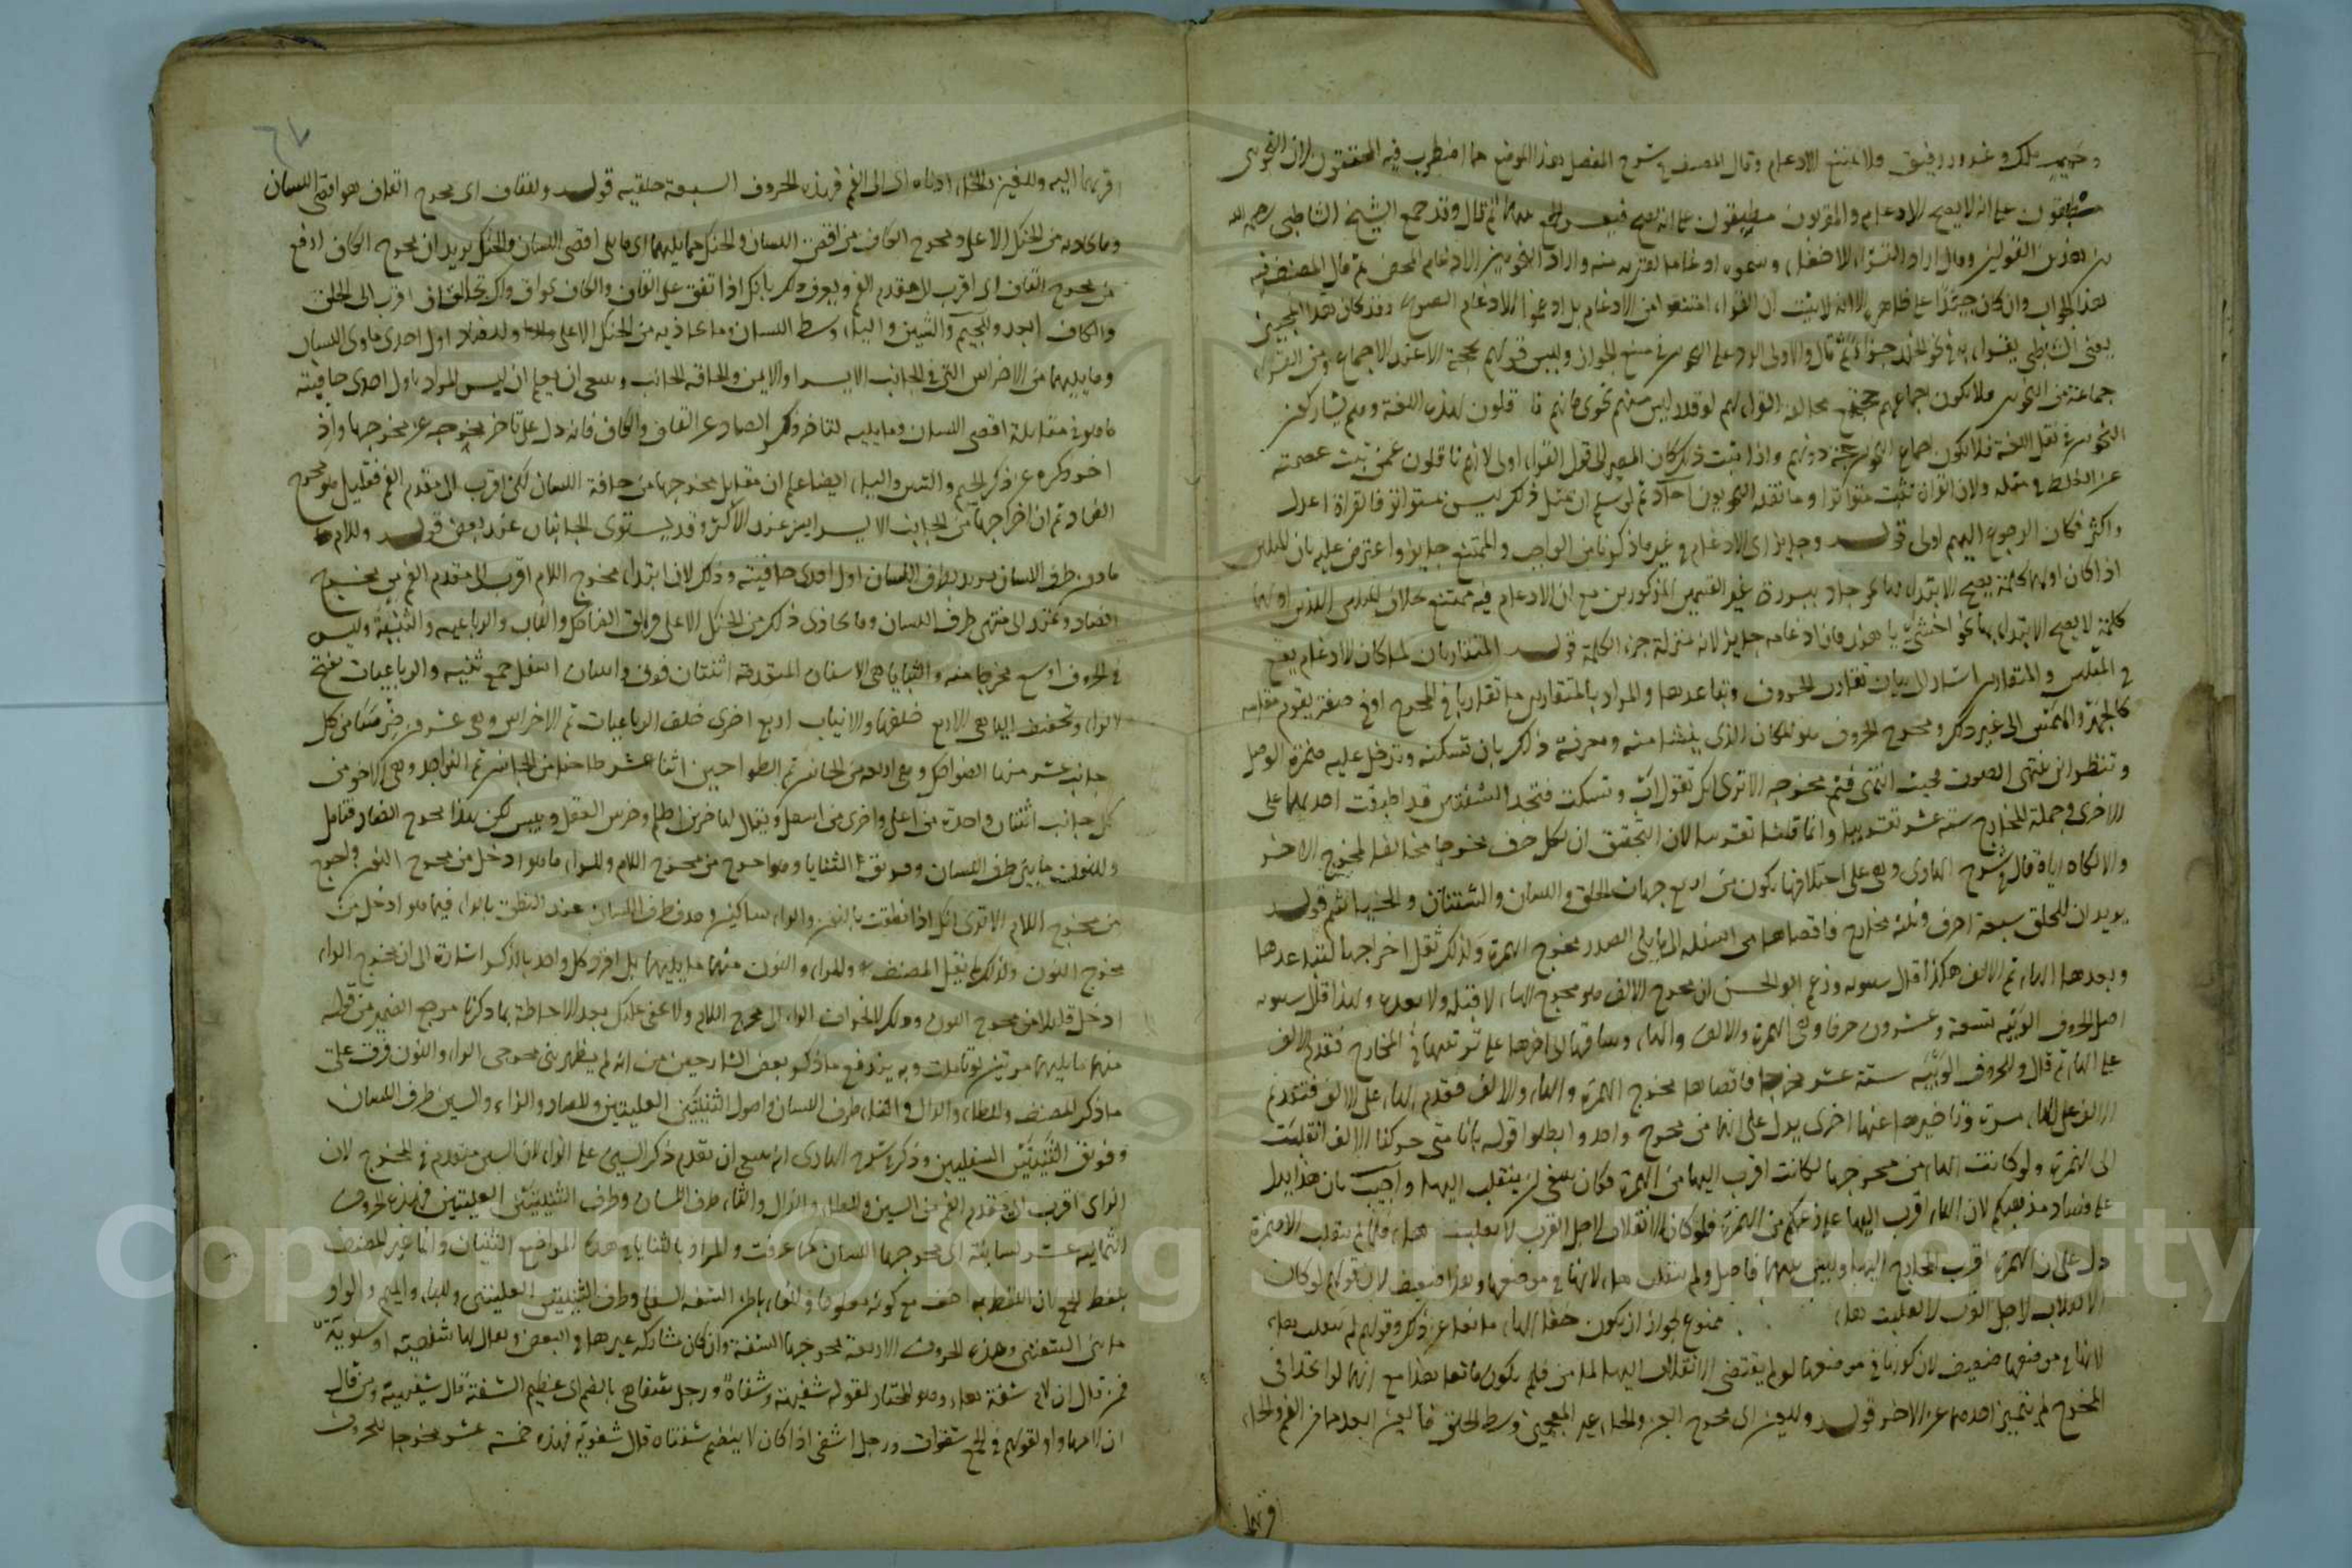 وحميم ملك وعدو ورفيق فلا يمتنع الادغام وقال المصنف في شرح المفصل هذا الموضع مما اضطرب فيه المحققون لان النحويين
مطبقون على انه لا يصح الادغام والمقريون مطبقون على انه يصح فيعسر الجمع بينهما ثم قال وقد جمع الشيخ الشاطبي رحمه الله
بين هذين القولين وقال اراد القراء الاخفاء وسموه ادغاما لقربه منه واراد النحويين الادغام المحض ثم قال المصنف فيه
هذا الجواب وان كان جيدا على ظاهره الا انه لا يثبت ان القراء امتنعوا من الادغام بل ادغموا الادغام الصريح وقد كان هذا المجيب
يعني الشاطبي يقرا به في نحو الخلد جزاء ثم قال والاولى الرد على النحويين في منع الجواز وليس قولهم بحجة الا عند الاجماع ومن القراء
جماعة من النحويين فلا يكون اجماعهم حجة مع مخالفة القراء لهم لو قدر ليس منهم نحوي فانهم ناقلون لهذه اللغة وهم يشاركون
النحويين في نقل اللغة فلا يكون اجماع النحويين حجة دونهم واذا ثبت ذلك كان المصير الى قول القراء اولى لانهم ناقلون عمن ثبت عصمته
عن الغلط في مثله ولان القراءة تثبت متواترا وما نقله النحويون آحاد ثم لو سلم ان مثل ذلك ليس بمتواتر فالقراءة اعدل
واكثر فكان الرجوع اليهم اولى قوله وجايز اي الادغام في غير ما ذكرنا من الواجب والممتنع جايز واعترض عليه بان المثلين
اذا كان اولهما كلمة يصح الابتداء بها نحو جاد ببدرة غير القسمين المذكورين مع ان الادغام فيه ممتنع بخلاف المثلين الذين اولهما
كلمة لا يصح الابتداء بها نحو اخشي يا هند فان ادغامه جايز لانه بمنزلة جزء الكلمة قوله المتقاربان لما كان الادغام يقع
في المثلين والمتقاربين اشار الى بيان تقارب الحروف وتباعدها والمراد بالمتقاربين ما تقاربا في المخرج او في صفة يقوم مقامه
كالجهر والهمس الى غير ذلك ومخرج الحروف هو المكان الذي ينشا منه ومعرفة ذلك بان تسكنه وتدخل عليه همزة الوصل
وتنظر اين ينتهي الصوت فحيث انتهى فثم مخرجه الا ترى انك تقول اب وتسكت فتجد الشفتين قد اطبقت احديهما على
الاخرى وجملة المخارج ستة عشر تقريبا وانما قلنا تقريبا لان التحقيق ان لكل حرف مخرجا مخالفا لمخرج الاخر
والا لكان اياه قال في شرح الهادي وهي على اختلافها تكون من اربع جهات الحلق واللسان والشفتان والخياشيم قوله
يريد ان للحلق سبعة احرف وثلثة مخارج فاقصاها من اسفله الى ما يلي الصدر مخرج الهمزة ولذلك ثقل اخراجها لتباعدها
وبعدها الهاء ثم الالف هكذا قال سيبويه وزعم ابو الحسن ان مخرج الالف هو مخرج الهاء لا قبله ولا بعده وهذا قال سيبويه
اصل الحروف العربية تسعة وعشرون حرفا وهي الهمزة والالف والهاء وساقها الى اخرها على ترتيبها في المخارج فقدم الالف
على الهاء ثم قال وللحروف العربية ستة عشر مخرجا فاقصاها مخرج الهمزة والهاء والالف فقدم الهاء على الالف فتقديم
الالف على الهاء مرة وتاخيرها عنها اخرى يدل على انهما من مخرج واحد وابطلوا قوله بانا متى حركنا الالف انقلبت
الى الهمزة ولو كانت الهاء من مخرجها لكانت اقرب اليها من الهمزة فكان ينبغي ان ينقلب اليها واجيب بان هذا يدل
على فساد مذهبكم لان الهاء اقرب اليها على زعمكم من الهمزة فلو كان الانقلاب لاجل القرب لانقلبت هاء فلما لم ينقلب الا همزة
دل على ان الهمزة اقرب المخارج اليها وليس بينهما فاصل ولم ينقلب هاء لانها في موضعها وهذا ضعيف لان قولهم لو كان
الانقلاب لاجل القرب لانقلبت هاء ممنوع لجواز ان يكون خفاء الهاء مانعا عن ذلك وقولهم لم ينقلب هاء
لانها في موضعها ضعيف لان كونها في موضعها لو لم يقتضي الانقلاب اليها لما من فلم يكون مانعا هذا مع انهما لو اتحدا في
المخرج لم يتميز احدهما عن الاخر قوله وللعين اي مخرج العين والحاء غير المعجمتين وسط الحلق فالعين ابعدهما من الفم والحاء
اقربهما
اقربهما اليه وللغين والخاء ادناه اي الى الفم فهذه الحروف السبعة حلقية قوله وللقاف اي مخرج القاف هو اقصى اللسان
وما يحاذيه من الحنك الاعلى ومخرج الكاف من اقصى اللسان والحنك مما يليهما اي ما يلي اقصى اللسان والحنك يريد ان مخرج الكاف ارفع
من مخرج القاف اي اقرب الى مقدم الفم ويعرف ذلك بانك اذا تقف على القاف والكاف نحو اق واك تجد القاف اقرب الى الحلق
والكاف ابعد وللجيم والشين والياء وسط اللسان وما يحاذيه من الحنك الاعلى وللضاد اول احدى حافتي اللسان
وما يليهما من الاضراس التي في الجانب الايسر او الايمن والحافة الجانب وينبغي ان يعلم ان ليس المراد باول احدى حافيته
ما هو في مقابلة اقصى اللسان وما يليه لتاخر ذكر الضاد عن القاف والكاف فانه دل على تاخر مخرجه عن مخرجهما واذ
اخر ذكره عن ذكر الجيم والشين والياء ايضا علم ان مقابل مخرجها من حافة اللسان لكن اقرب الى مقدم الفم فقليل هو مخرج
الضاد ثم ان اخراجها من الجانب الايسر ايسر عند الاكثر وقد يستوي الجانبان عند بعض قوله وللام ما
ما دون طرف اللسان يريد بطرف اللسان اول احدى حافيته وذلك لان ابتداء مخرج اللام اقرب الى مقدم الفم من مخرج
الضاد ويمتد الى منتهى طرف اللسان وما يحاذى ذلك من الحنك الاعلى فويق الضاحك والناب والرباعية والثنية وليس
في الحروف اوسع مخرجا منه والثنايا هي الاسنان المتقدمة اثنتان فوق واثنتان اسفل جمع ثنية والرباعيات بفتح
الراء وتخفيف الياء هي الاربع خلفها والانياب اربع اخرى خلف الرباعيات ثم الاضراس وهي عشرون ضرسا من كل
جانب عشر منها الضواحك وهي اربعة من الجانبين ثم الطواحين اثنا عشر طاحنا من الجانبين ثم النواجذ وهي الاواخر من
كل جانب اثنتان واحدة من اعلى واخرى من اسفل ويقال لها ضرس الحلم وضرس العقل وليس لكن هذا مخرج الضاد فتامل
وللنون ما بين طرف اللسان وفويق الثنايا وهو اخرج من مخرج اللام وللراء ما هو ادخل من مخرج النون واخرج
من مخرج اللام الا ترى انك اذا نطقت بالنون والراء ساكنين وجدت طرف اللسان عند النطق بالراء فيما هو ادخل من
مخرج النون ولذلك لم يقل المصنف وللراء والنون منهما ما يليهما بل افرد كل واحد بالذكر اشارة الى ان مخرج الراء
ادخل قليلا من مخرج النون وذلك لانحراف الراء الى مخرج اللام ولا يخفى عليك بعد الاحاطة بما ذكرنا مرجع الضمير من قوله
منهما ما يليهما مرتين لو تاملت وبه يندفع ما ذكر بعض الشارحين من انه لم يظهر بين مخرجي الراء والنون فرق على
ما ذكر المصنف وللطاء والدال والتاء طرف اللسان واصول الثنيتين العليتين وللصاد والزاء والسين طرف اللسان
وفويق الثنيتين السفليين وذكر في شرح الهادي انه ينبغي ان تقدم ذكر السين على الزاء لان السين متقدم في المخرج لان
الزاي اقرب الى مقدم الفم من السين وللظاء والذال والثاء طرف اللسان وطرف الثنيتين العليتين فهذه الحروف
الثمانية عشر لسانية اي مخرجها اللسان كما عرفت والمراد بالثنايا في هذه المواضع الثنيتان وانما عبر المصنف
بلفظ الجمع لان اللفظ به اخف مع كونه معلوما وللفاء باطن الشفة السفلى وطرف الثنيتين العليتين وللباء والميم والواو
ما بين الشفتين وهذه الحروف الاربعة مخرجها الشفة وان كان شاركه غيرها في البعض ويقال لها شفهية او شفوية
فمن قال ان لام شفة هاء وهو المختار لقوله شفيهة وشفاه ورجل شفاهي بالضم اي عظيم الشفة قال شفهية ومن قال
ان لامها واو لقولهم في الجمع شفوات ورجل اشفى اذا كان لا ينضم شفتاه قال شفوية فهذه خمسة عشر مخرجا للحروف
Copyright © King Saud University